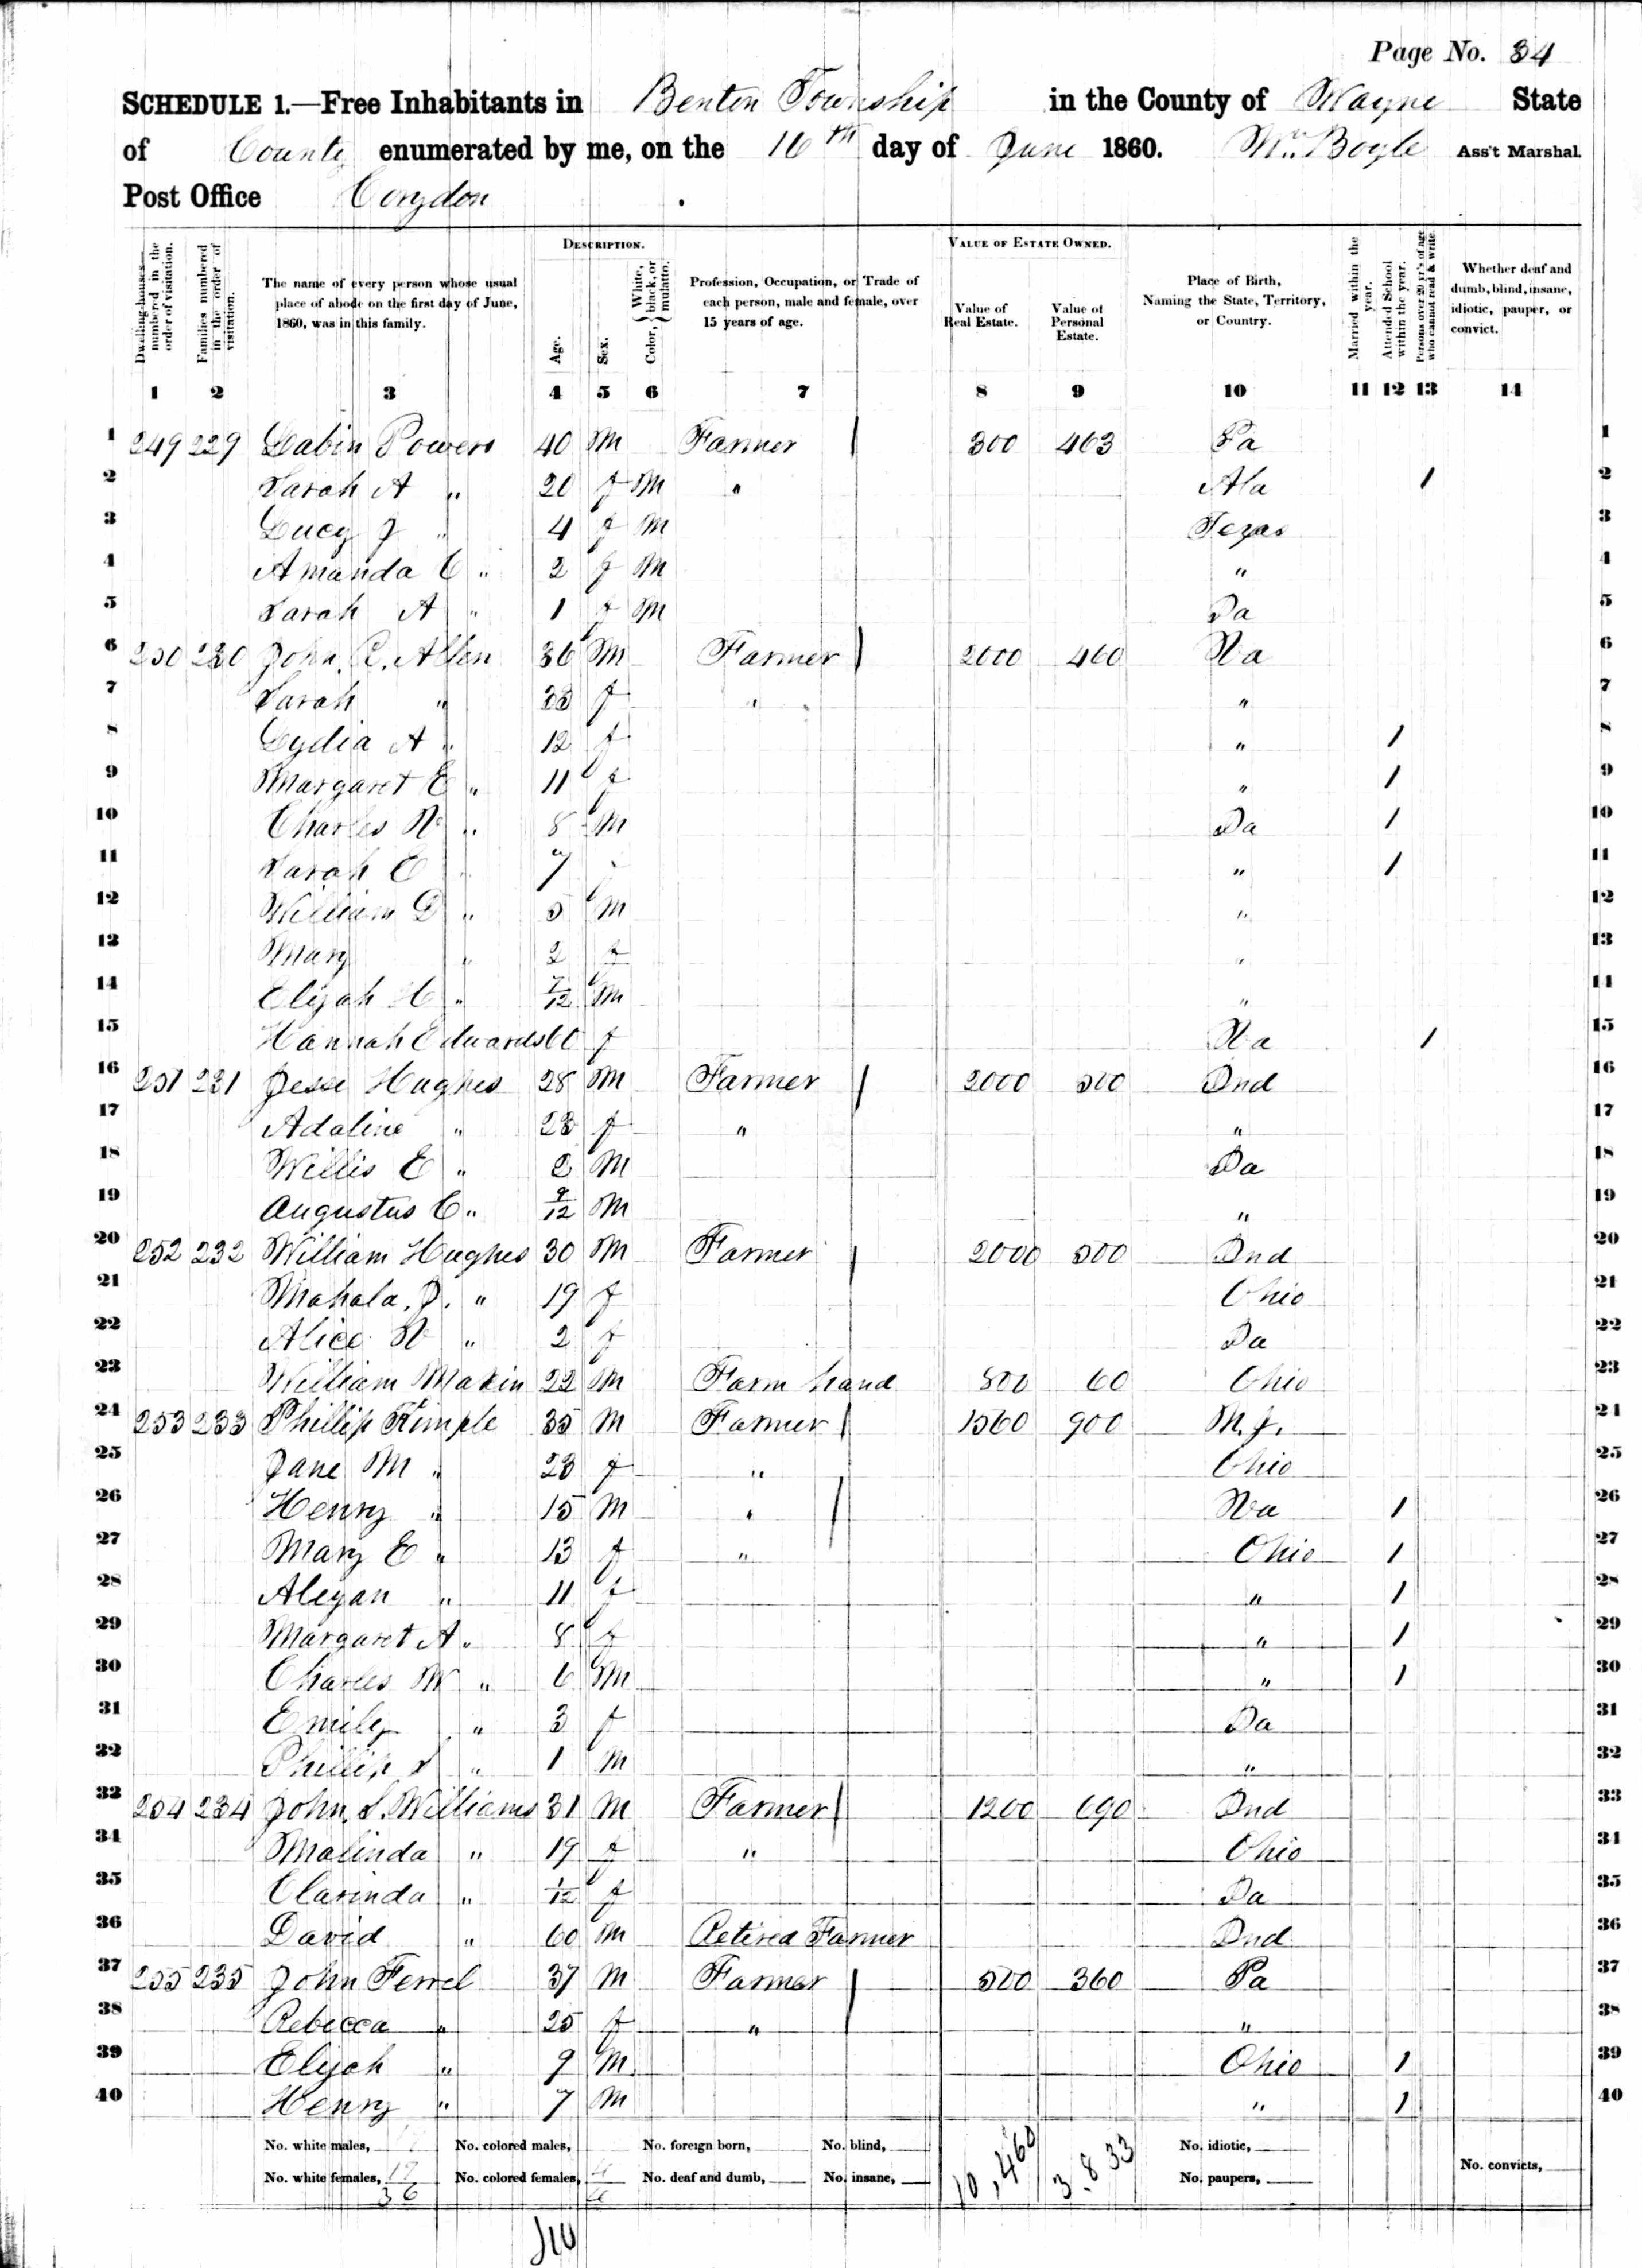 Page No. 34
SCHEDULE 1.—Free Inhabitants in Benton Township in the County of Wayne State
of County enumerated by me, on the 16th day of June 1860. Wm. Boyle Ass't Marshal.
Post Office Corydon
DESCRIPTION. VALUE OF ESTATE OWNED.
Dwelling-houses—numbered in the order of visitation. Families numbered in the order of visitation. The name of every person whose usual place of abode on the first day of June, 1860, was in this family. Age. Sex. Color, { White, black, or mulatto. Profession, Occupation, or Trade of each person, male and female, over 15 years of age. Value of Real Estate. Value of Personal Estate. Place of Birth, Naming the State, Territory, or Country. Married within the year. Attended School within the year. Persons over 20 y'rs of age who cannot read & write. Whether deaf and dumb, blind, insane, idiotic, pauper, or convict.
1 2 3 4 5 6 7 8 9 10 11 12 13 14
1 249 229 Labin Powers 40 M Farmer 300 463 Pa 1
2 Sarah A " 20 f M " Ala / 2
3 Lucy J " 4 f M Texas 3
4 Amanda C " 2 f M " 4
5 Sarah A " 1 f M Ia 5
6 250 230 John C. Allen 36 M Farmer 2000 460 Va 6
7 Sarah " 33 f " " 7
8 Lydia A " 12 f " / 8
9 Margaret E " 11 f " / 9
10 Charles W " 8 M Ia / 10
11 Sarah E 7 " / 11
12 William D " 5 M " 12
13 Mary " 2 f " 13
14 Elijah H " 7/12 M " 14
15 Hannah Edwards 60 f Va / 15
16 251 231 Jesse Hughes 28 M Farmer 2000 500 Ind 16
17 Adaline " 23 f " " 17
18 Willis E " 2 M Ia 18
19 Augustus C " 9/12 M " 19
20 252 232 William Hughes 30 M Farmer 2000 500 Ind 20
21 Mahala. J. " 19 f Ohio 21
22 Alice W " 2 f Ia 22
23 William Makin 22 M Farm hand 800 60 Ohio 23
24 253 233 Phillip Kimple 35 M Farmer 1560 900 N.J. 24
25 Jane M " 23 f " Ohio 25
26 Henry " 15 M " Va / 26
27 Mary E " 13 f " Ohio / 27
28 Alexan " 11 f " / 28
29 Margaret A " 8 f " / 29
30 Charles W " 6 M " / 30
31 Emily " 3 f Ia 31
32 Phillip S " 1 M " 32
33 254 234 John S. Williams 31 M Farmer 1200 690 Ind 33
34 Malinda " 19 f " Ohio 34
35 Clarinda " 1/12 f Ia 35
36 David " 60 M Retired Farmer Ind 36
37 255 235 John Ferrel 37 M Farmer 500 360 Pa 37
38 Rebecca " 25 f " " 38
39 Elijah " 9 M Ohio / 39
40 Henry " 7 M " / 40
No. white males, No. colored males, No. foreign born, No. blind, 10,460 3.833 No. idiotic,
No. white females, No. colored females, 4 No. deaf and dumb, No. insane, No. paupers, No. convicts,
36
40